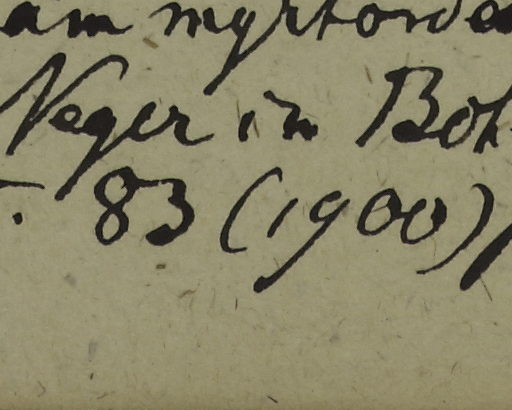 am myrtorde
Neger in Boh
. 83 (1900)